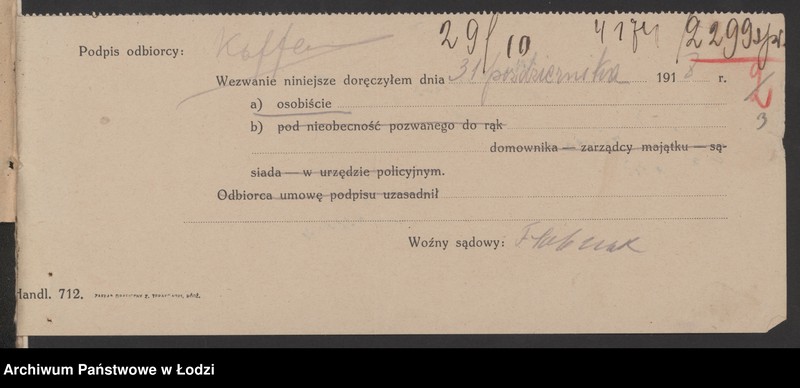 29/10 4174 2299
Podpis odbiorcy:
Wezwanie niniejsze doręczyłem dnia 31 października 1918 r.
a) osobiście
3
b) pod nieobecność pozwanego do rąk
domownika — zarządcy majątku — są-
siada — w urzędzie policyjnym.
Odbiorca umowę podpisu uzasadnił
Woźny sądowy:
Handl. 712.
Archiwum Państwowe w Łodzi